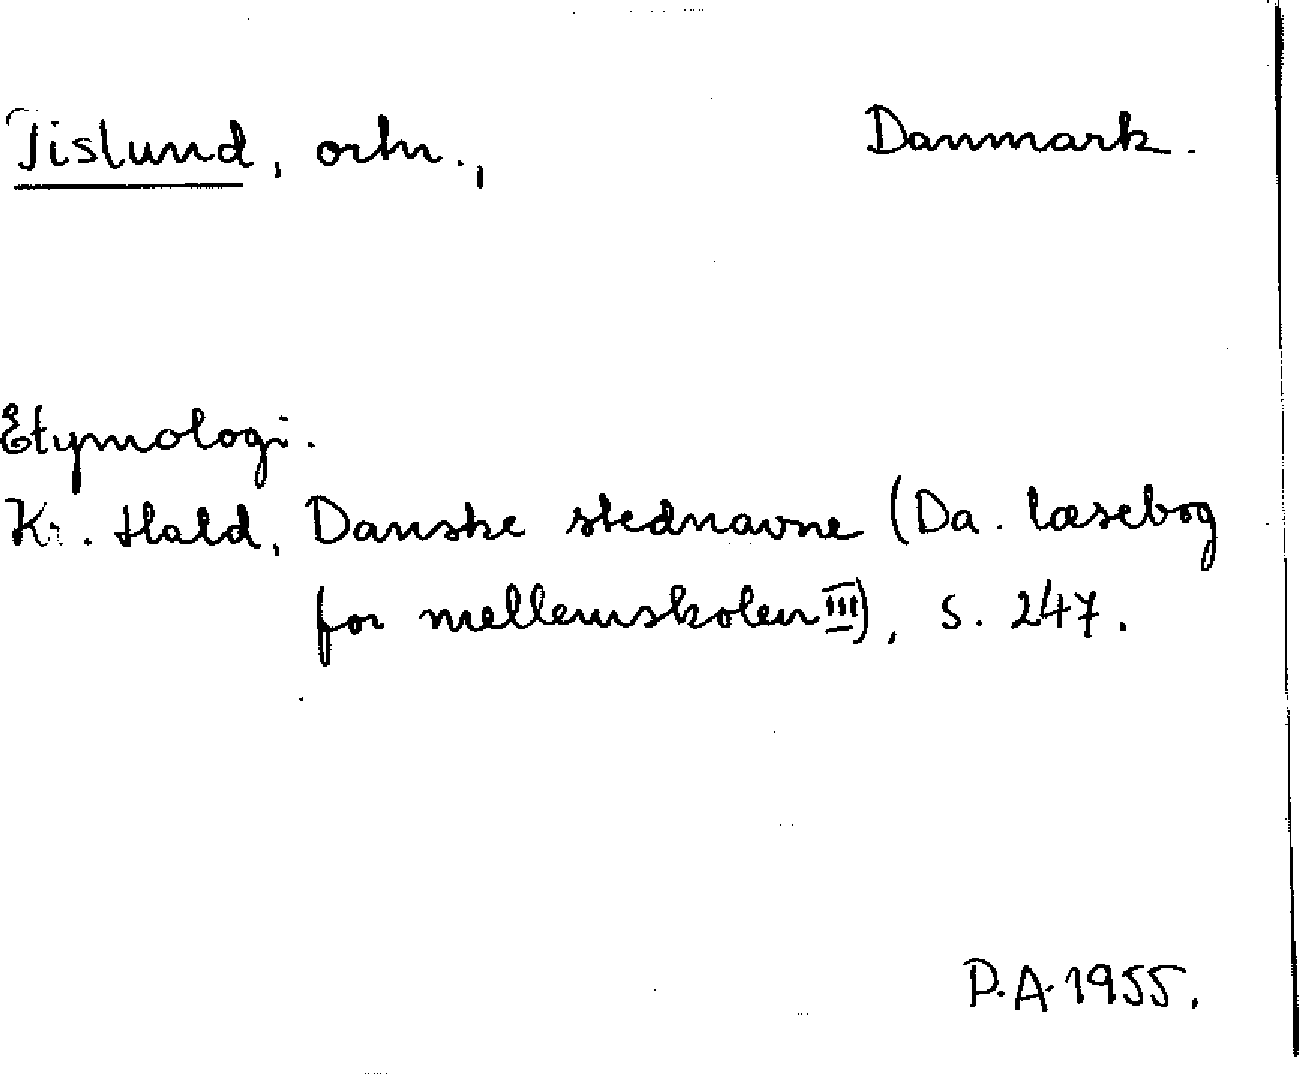 Tislund, ortn., Danmark.
Etymologi.
Kr. Hald, Danske stednavne (Da. læsebog
for mellemskolen III), S. 247.
P.A. 1955.